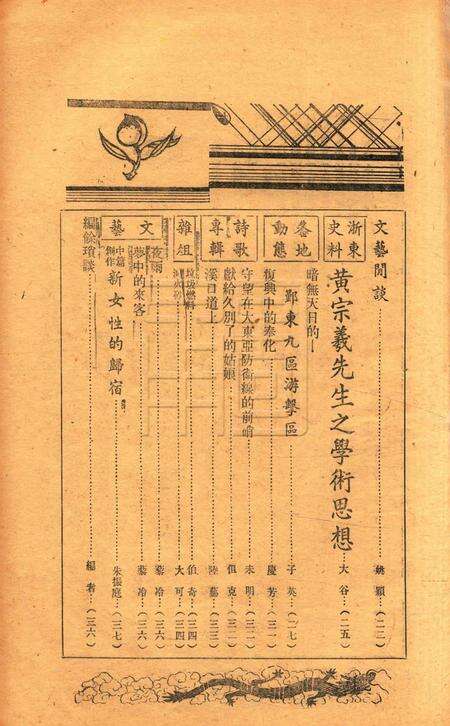 文藝閒談……姚穎…（二二）
浙東史料
黃宗羲先生之學術思想…大谷…（二五）
各地動態
暗無天日的—
鄞東九區游擊區……子英…（二七）
復興中的奉化……慶芳…（三一）
詩歌專輯
守望在大東亞防衛線的前哨……未明…（三二）
獻給久別了的姑娘……但克…（三二）
溪口道上……陸藝…（三三）
雜俎
垃圾燃料……伯奇…（三四）
大可…（三四）
文藝
夜雨……藝冷…（三六）
夢中的來客……藝冷…（三六）
中篇創作 新女性的歸宿……朱振庭…（三七）
編餘瑣談……編者…（三六）